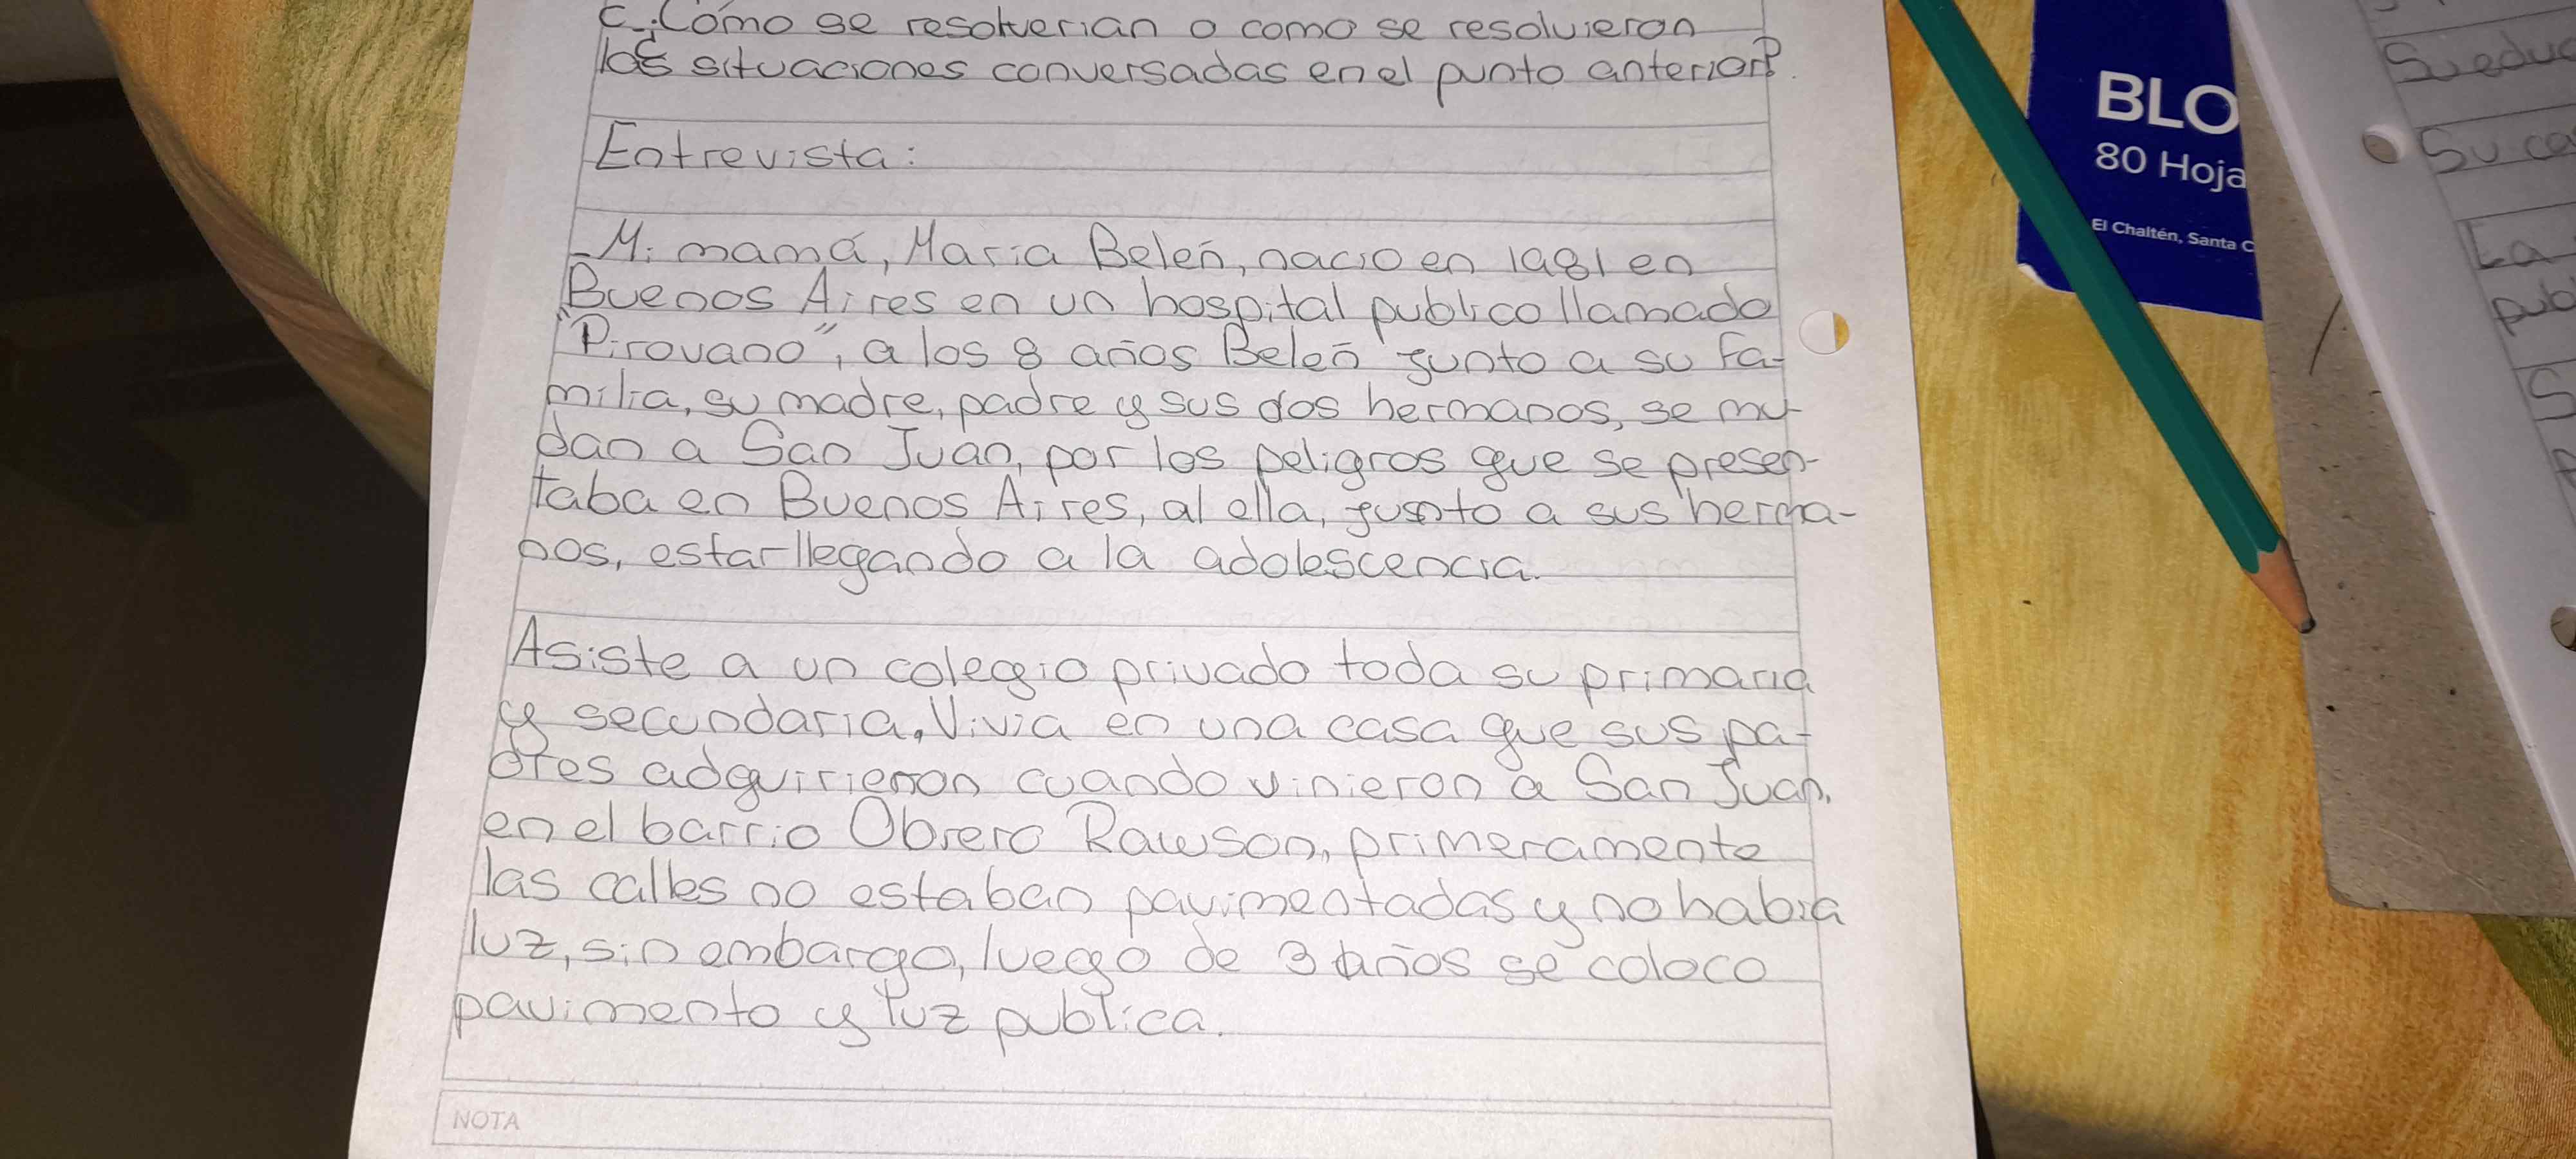 c. ¿Cómo se resolverian o como se resolvieron
las situaciones conversadas en el punto anterior?
Entrevista:
- Mi mamá, Maria Belén, nacio en 1981 en
Buenos Aires en un hospital publico llamado
"Pirovano", a los 8 años Belén junto a su fa-
milia, su madre, padre y sus dos hermanos, se mu-
dan a San Juan, por los peligros que se presen-
taba en Buenos Aires, al ella, junto a sus herma-
nos, estar llegando a la adolescencia.
Asiste a un colegio privado toda su primaria
y secundaria. Vivia en una casa que sus pa-
dres adquirieron cuando vinieron a San Juan,
en el barrio Obrero Rawson, primeramente
las calles no estaban pavimentadas y no habia
luz, sin embargo, luego de 3 años se coloco
pavimento y luz publica.
NOTA
BLO
80 Hoja
El Chaltén, Santa C
Su ca
La
pub
S